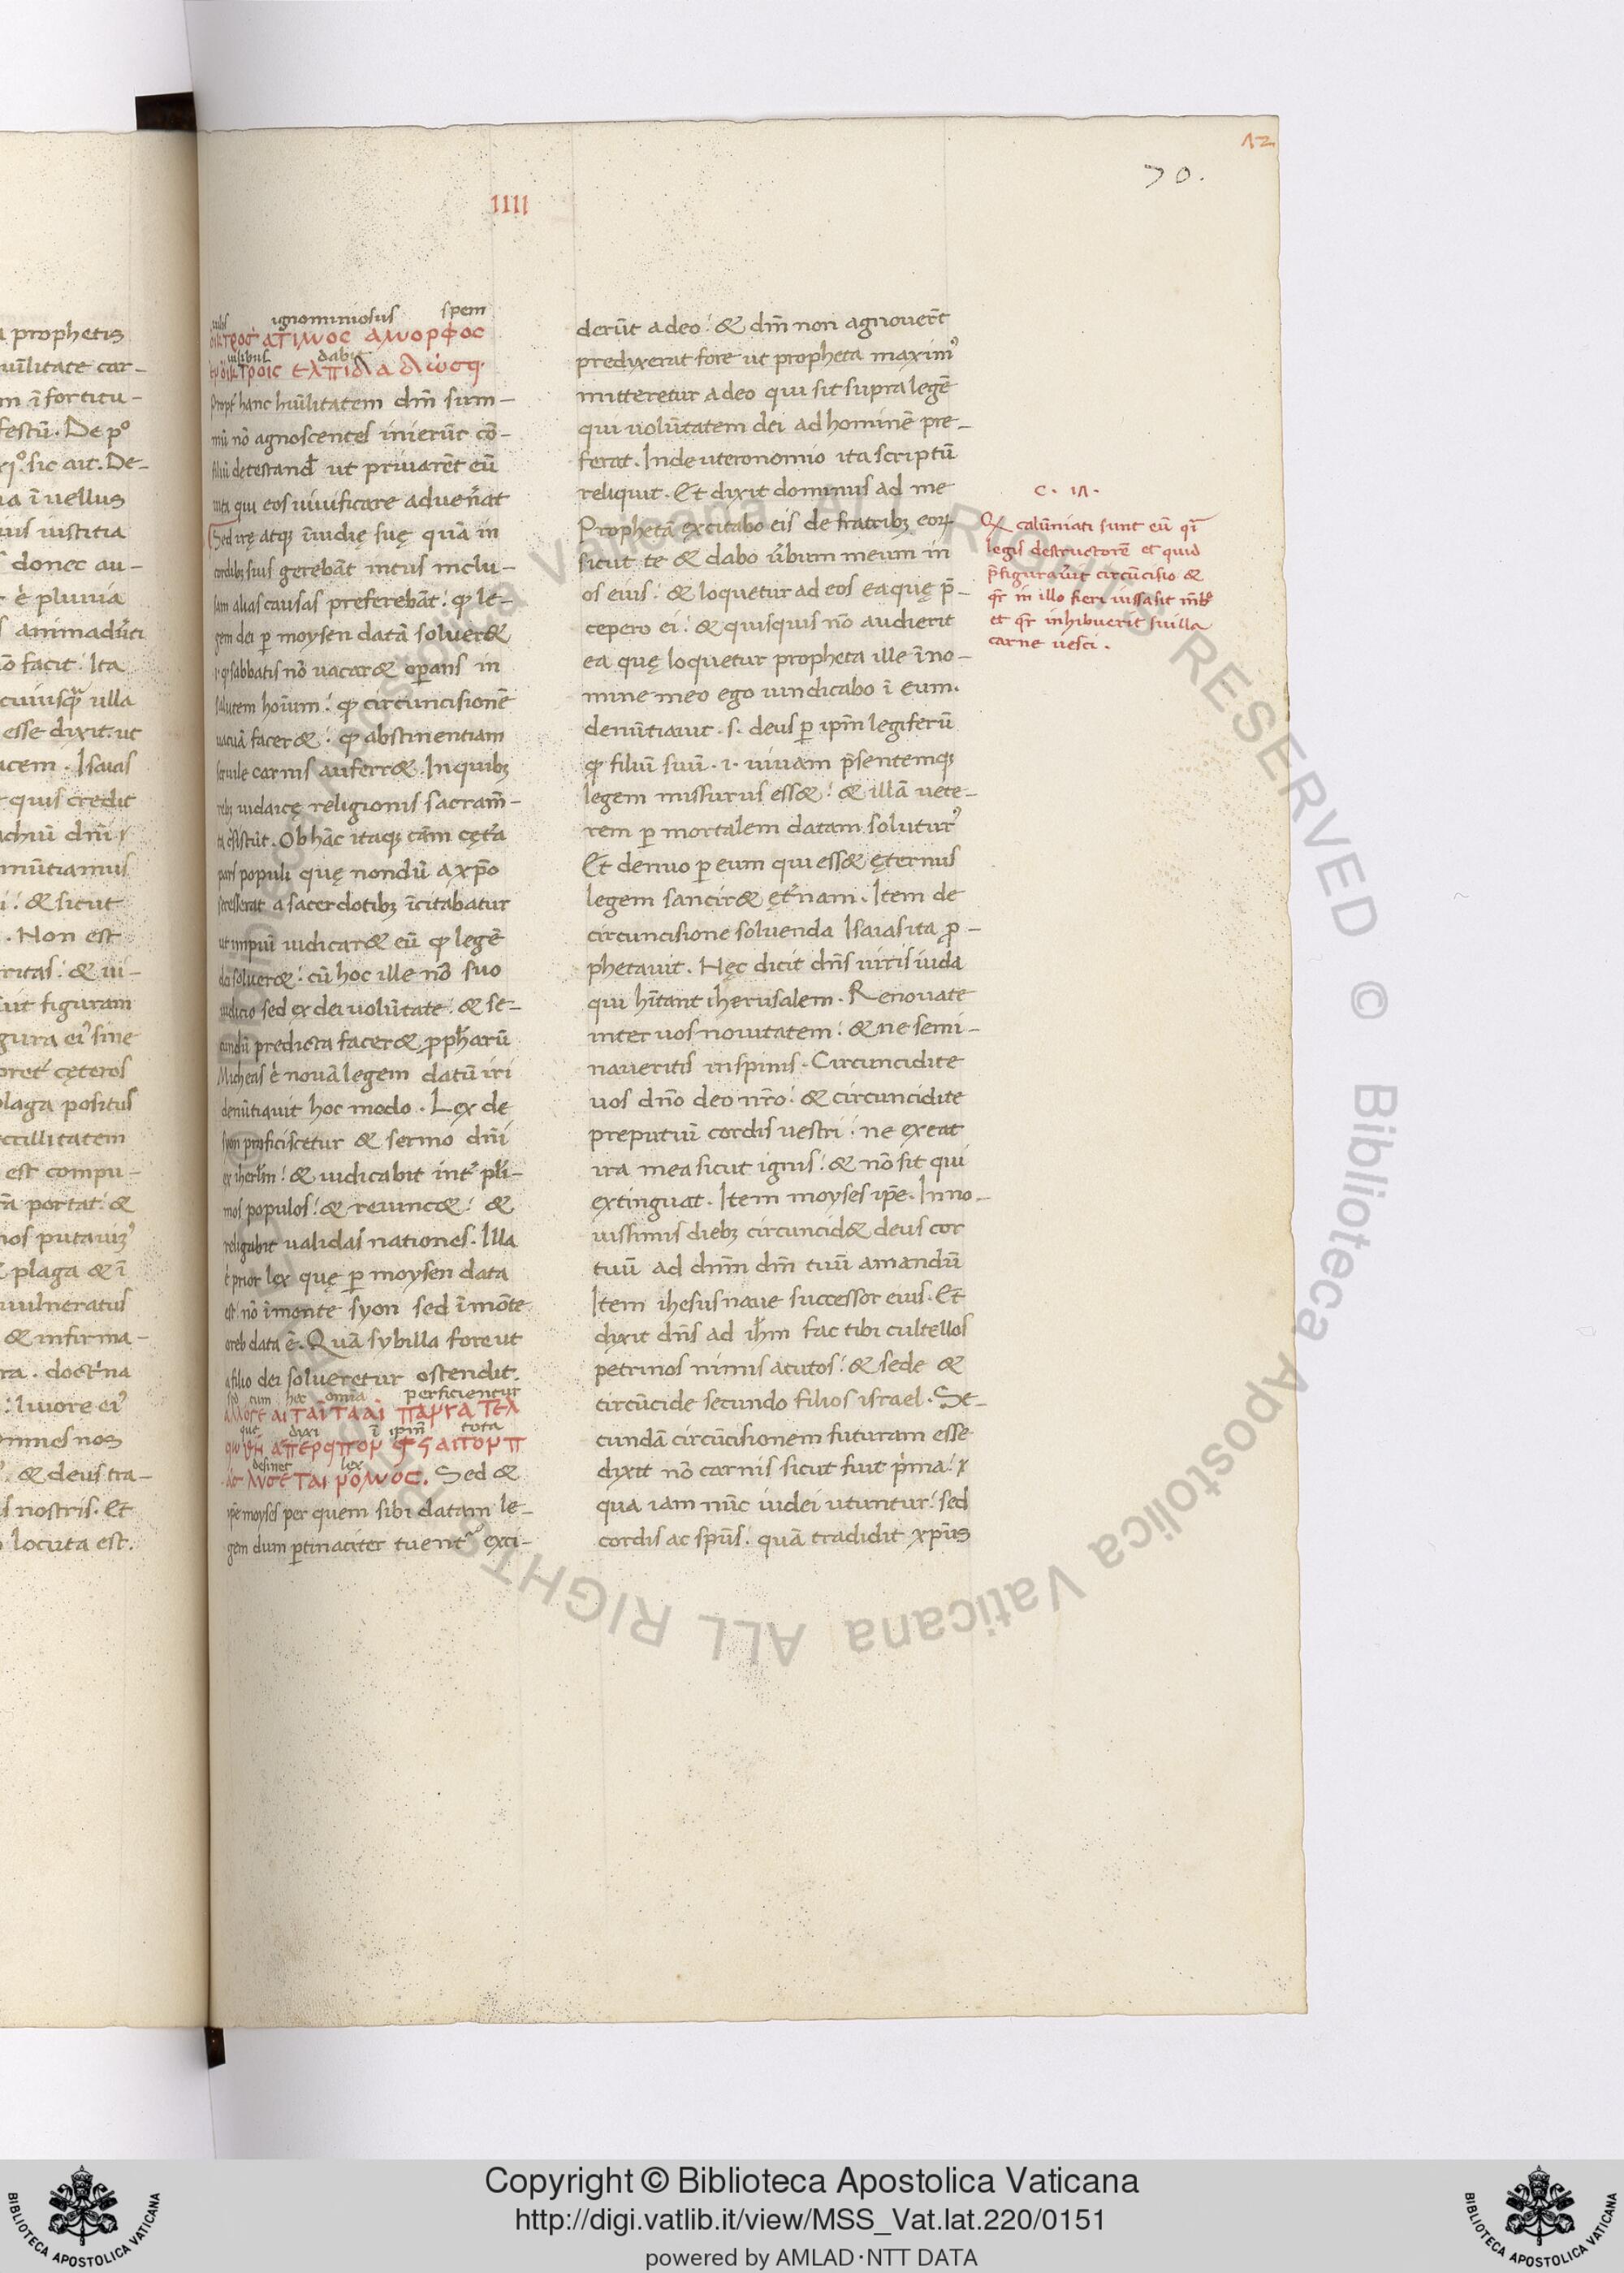 12
70.
IIII
a prophetis
uīlitate car-
m ī fortitu-
festū. De pº
xiº. sic ait. De-
ua ī uellus
eius iustitia
donec au-
ē pluuia
animaduˀti
nō facit: Ita
cuiusqꝫ ulla
esse dixit. ut
acem. Isaias
quis credit
achiū dn̄i
nūtiamus
i: & sicut
. Non est
ritas: & ui-
uit figuram
gura eiˀ sine
pret cęteros
plaga positus
cillitatem
est compu-
rā portat: &
nos putauimˀ
plaga & ī
uulneratus
& infirma-
ra. doctˀna
: liuore eiˀ
omnes nos
: & deus tra-
is nostris. Et
locuta est.
ignominiosus spem
οικτρος ατιμος αμορφος
dabit
οικτροις ελπιδα δώσει
Propt hanc hūlitatem dm̄ sum-
mū nō agnoscentes inierūt cō-
siliū detestand ut priuarēt eū
uita qui eos uiuificare aduenˀat
Sed irę atqꝫ īuidię suę quā in
cordibꝫ suis gerebāt intus inclu-
sam alias causas preferebāt: ꝙ le-
gem dei ꝑ moysen datā soluer&
ꝙ sabbatis nō uacar& oꝑans in
salutem hoīum: ꝙ circuncisionē
uacuā facer&: ꝙ abstinentiam
suille carnis auferr&. In quibꝫ
rebꝫ iudaicę religionis sacram̄-
ta cōsistūt. Ob hāc itaqꝫ cām cętˀa
pars populi quę nondū a xp̄o
secesserat a sacerdotibꝫ īcitabatur
ut impiū iudicar& eū ꝙ legē
dei soluer&: cū hoc ille nō suo
iudicio sed ex dei uolūtate: & se-
cundū predicta facer& ꝓph̄arū
Micheas ē nouā legem datū iri
denūtiauit hoc modo. Lex de
syon proficiscetur & sermo dn̄i
ex iherlm̄: & iudicabit intˀ pli-
mos populos: & reuinc&: & 
religabit ualidas nationes. Illa
ē prior lex quę ꝑ moysen data
est nō ī monte syon sed ī mōte
oreb data ē. Quā sybilla fore ut
a filio dei solueretur ostendit.
sed cum hec omnia perficientur
αλλοτε αι ταῖ τααι παμγα τελ
que dixi ī ipm̄ tota
desinet lex
λυσεται μομος. Sed &
ip̄e moyses per quem sibi datam le-
gem dum ꝑtinaciter tuentˀ exci-
derūt a deo: & dm̄ non agnouerˀt
predixerat fore ut propheta maximˀ
mitteretur a deo qui sit supra legē
qui uolūtatem dei ad hominē pre-
ferat. In deuteronomio ita scriptū
reliquit. Et dixit dominus ad me
Prophetā excitabo eis de fratribꝫ eoꝝ
sicut te & dabo uˀbum meum in
os eius: & loquetur ad eos ea quę p̄-
cepero ei: & quisquis nō audierit
ea quę loquetur propheta ille ī no-
mine meo ego uindicabo ī eum.
denūtiauit .s. deus ꝑ ip̄m legiferū
ꝙ filiū suū .i. uiuam p̄sentemqꝫ
legem missurus ess&: & illā uete-
rem ꝑ mortalem datam soluturˀ
Et denuo ꝑ eum qui ess& ęternus
legem sancir& ętˀnam. Item de
circuncisione soluenda Isaias ita ꝓ-
phetauit. Hęc dicit dn̄s uiris iuda
qui hītant iherusalem. Renouate
inter uos nouitatem: & ne semi-
naueritis in spinis. Circuncidite
uos dn̄o deo nr̄o: & circuncidite
preputiū cordis uestri: ne exeat
ira mea sicut ignis: & nō sit qui
extinguat. Item moyses ip̄e. In no-
uissimis diebꝫ circuncid& deus cor
tuū ad dnm̄ dm̄ tuū amandū
Item ihesus naue successor eius. Et
dixit dn̄s ad ih̄m fac tibi cultellos
petrinos nimis acutos: & sede &
circūcide secundo filios israel. Se-
cundā circūcisionem futuram esse
dixit nō carnis sicut fuit pˀma:
qua iam nūc iudei utuntur: sed
cordis ac sp̄us. quā tradidit xp̄us
C. IΛ.
calūniati sunt eū qˀi
legis destructorē et quid
p̄figurauˀit circūcisio &
qr̄ in illo fieri iussa sit
et qr̄ inhibuerit suilla
carne uesci.
© Biblioteca Apostolica Vaticana ALL RIGHTS RESERVED © Biblioteca Apostolica Vaticana ALL RIGHTS
Copyright © Biblioteca Apostolica Vaticana
http://digi.vatlib.it/view/MSS_Vat.lat.220/0151
powered by AMLAD·NTT DATA
BIBLIOTECA APOSTOLICA VATICANA
BIBLIOTECA APOSTOLICA VATICANA